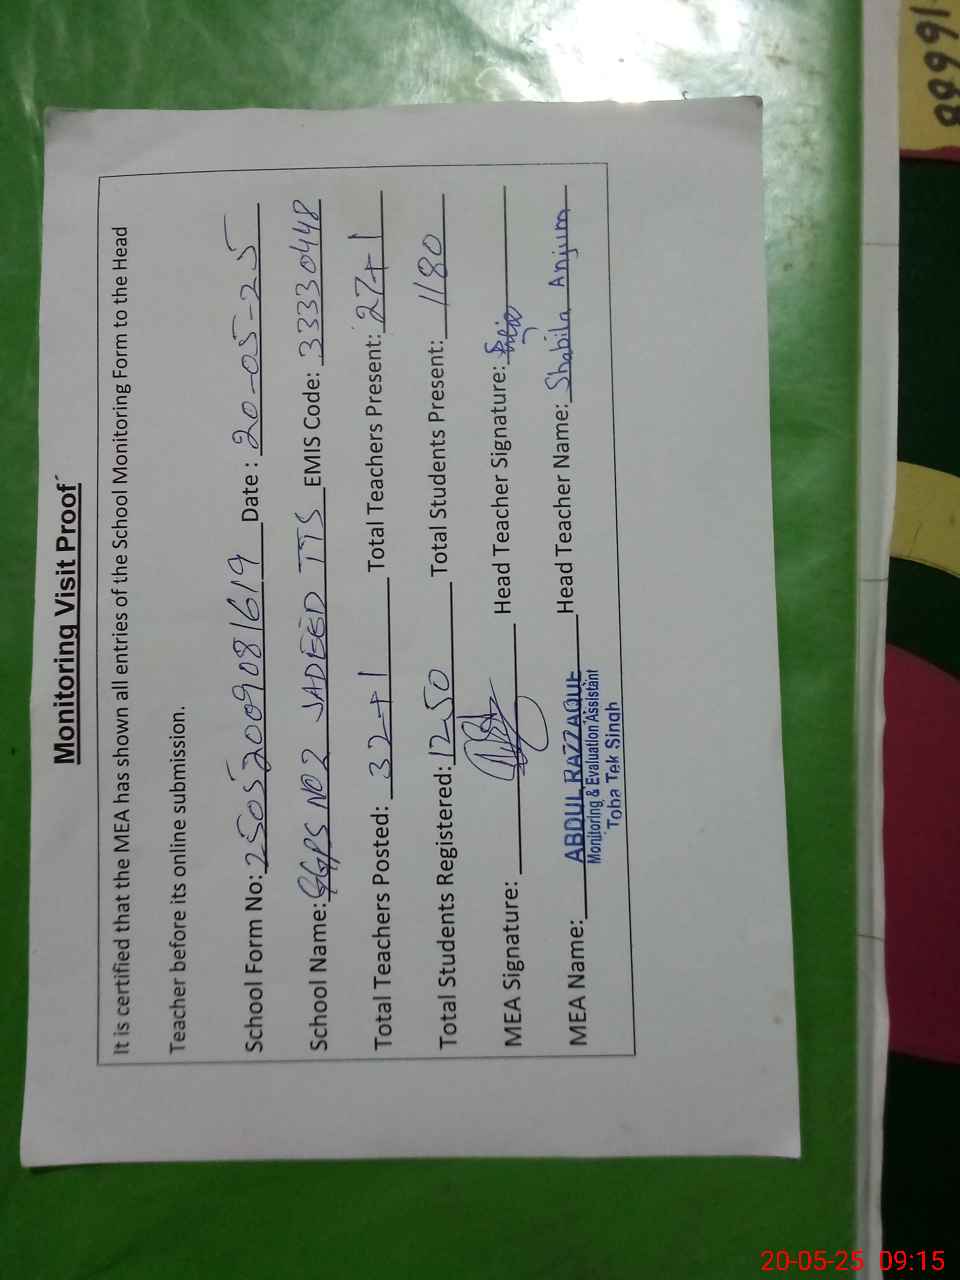 Monitoring Visit Proof
It is certified that the MEA has shown all entries of the School Monitoring Form to the Head
Teacher before its online submission.
School Form No: 25052009081619 Date : 20-05-25
School Name: GGPS NO 2 JADEED TTS EMIS Code: 33330448
Total Teachers Posted: 32+1 Total Teachers Present: 27+1
Total Students Registered: 1250 Total Students Present: 1180
MEA Signature: Head Teacher Signature:
MEA Name: ABDUL RAZZAQUE Head Teacher Name: Shabila Anjum
Monitoring & Evaluation Assistant
Toba Tek Singh
89991
20-05-25 09:15